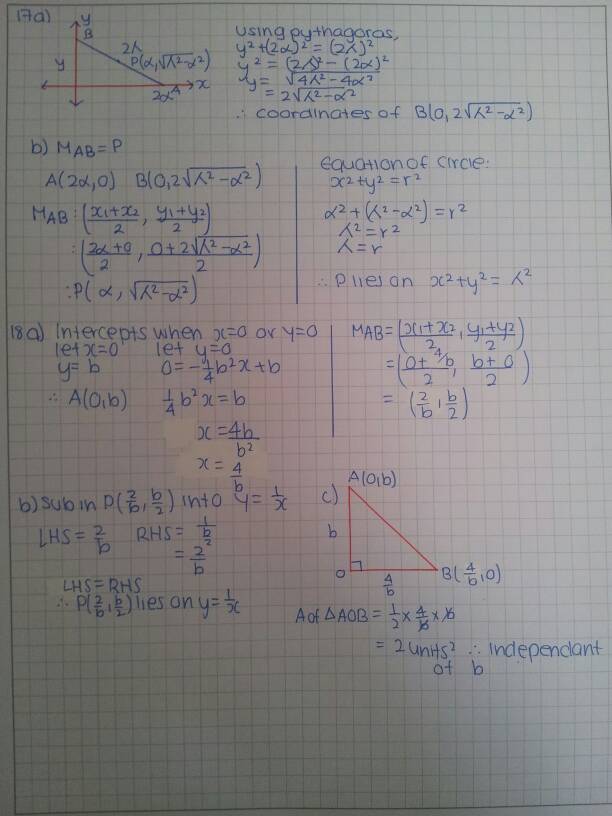 17a)
y
B
2λ
P(α,√λ²-α²)
y
2α A x
using pythagoras,
y²+(2α)² = (2λ)²
y² = (2λ)² - (2α)²
y = √4λ²-4α²
= 2√λ²-α²
∴ coordinates of B(0,2√λ²-α²)
b) MAB = P
A(2α,0) B(0,2√λ²-α²)
MAB : (x₁+x₂/2 , y₁+y₂/2)
: (2α+0/2 , 0+2√λ²-α²/2)
:P(α, √λ²-α²)
Equation of circle:
x²+y² = r²
α²+(λ²-α²) = r²
λ² = r²
λ = r
∴ P lies on x²+y² = λ²
18a) Intercepts when x=0 or y=0
let x=0 let y=0
y = b 0 = -1/4b²x+b
∴ A(0,b) 1/4b²x = b
x = 4b/b²
x = 4/b
MAB = (x₁+x₂/2, y₁+y₂/2)
= (0+4/b/2, b+0/2)
= (2/b, b/2)
b) Sub in P(2/b, b/2) into y = 1/x
LHS = 2/b RHS = 1/b/2
= 2/b
LHS = RHS
∴ P(2/b, b/2) lies on y = 1/x
c)
A(0,b)
b
O
4/b
B(4/b,0)
A of △AOB = 1/2 × 4/b × b
= 2 units² ∴ independant
of b